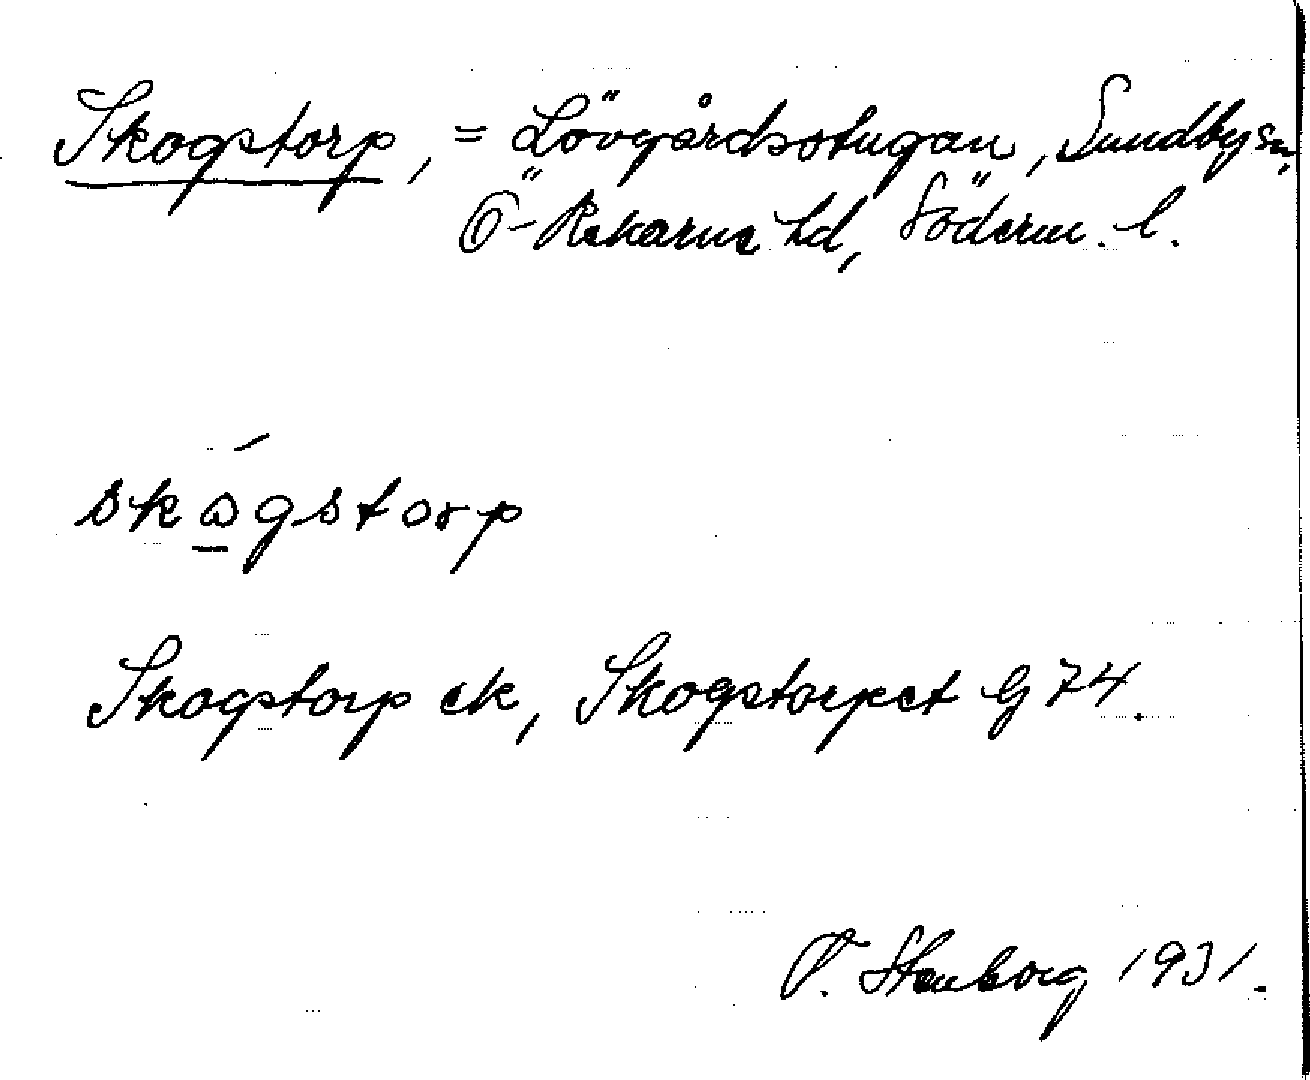 Skogstorp, = Lövgårdsstugan, Sundby sn,
Ö-Rekarne hd, Söderm. l.
skɷ̠́gstorp
Skogstorp ek, Skogstorpet G 74.
Stenborg 1931.